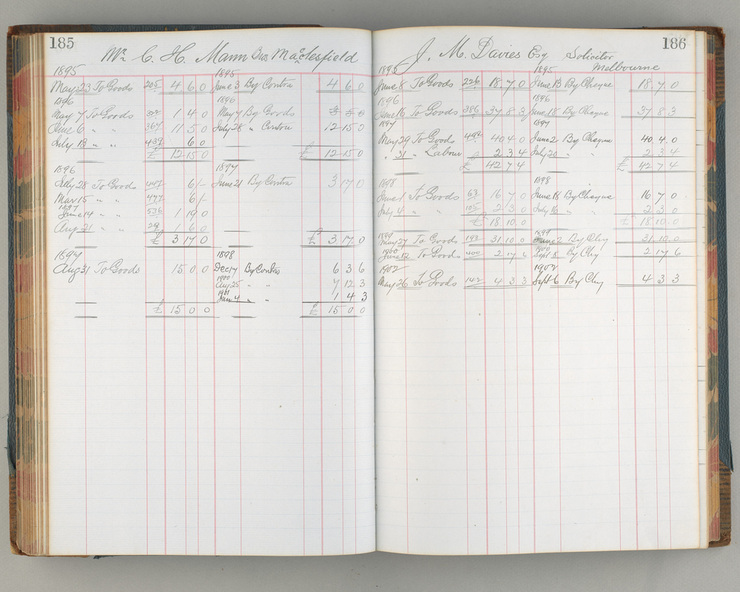 185
Mr. C. H. Mann
1895 1895
May 23 To Goods 205 4 6 0 June 3 By Contra 4 6 0
1896 1896
May 7 To Goods 1 4 0 May 7 By Goods
June 6 " " 11 5 0 July 28 " Contra 12 15 0
July 18 " " 6 0
£ 12 15 0 £ 12 15 0
1896 1897
July 28 To Goods 6/- June 21 By Contra 3 17 0
Mar 15 " " 477 6/-
1897
June 14 " " 536 1 19 0
Aug 21 " " 6/
£ 3 17 0 £ 3 17 0
1897 1898
Aug 21 To Goods 15 0 0 Dec 17 By Contra 6 3 6
1900
Aug 25 " " 7 12 3
1901
" " 1 4 3
£ 15 0 0 £ 15 0 0
186
J. M. Davies Esq Solicitor
Melbourne
1895 1895
June 8 To Goods 226 18 7 0 June 13 By Cheque 18 7 0
1896 1896
To Goods 386 37 8 3 June 18 By Cheque 37 8 3
1897 1897
May 29 To Goods 40 4 0 June 2 By Cheque 40 4 0
" 31 " Labour 2 3 4 July 20 " " 2 3 4
£ 42 7 4 £ 42 7 4
1898 1898
June 1 To Goods 63 16 7 0 June 18 By Cheque 16 7 0
July 4 " " 2 3 0 July 16 " " 2 3 0
£ 18 10 0 £ 18 10 0
1899 1899
May 27 To Goods 31 10 0 June 2 By Chq 31 10 0
1900 1900
June 12 To Goods 2 17 6 Sept 8 By Chq 2 17 6
1902 1902
May 26 To Goods 142 4 3 3 Sept 6 By Chq 4 3 3